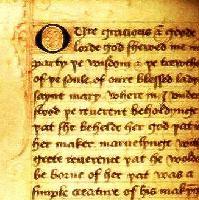 OUre gracious & goode
lorde god shewed me in
party þe wisdom & þe trewth
of þe soule of oure blessed lady
saynt mary where in I vnder
stood þe reuerent beholdynge
þat she behelde her god þat
her maker maruelynge with
grete reuerent þat he wolde
be borne of her þat was a
simple creature of his makyng